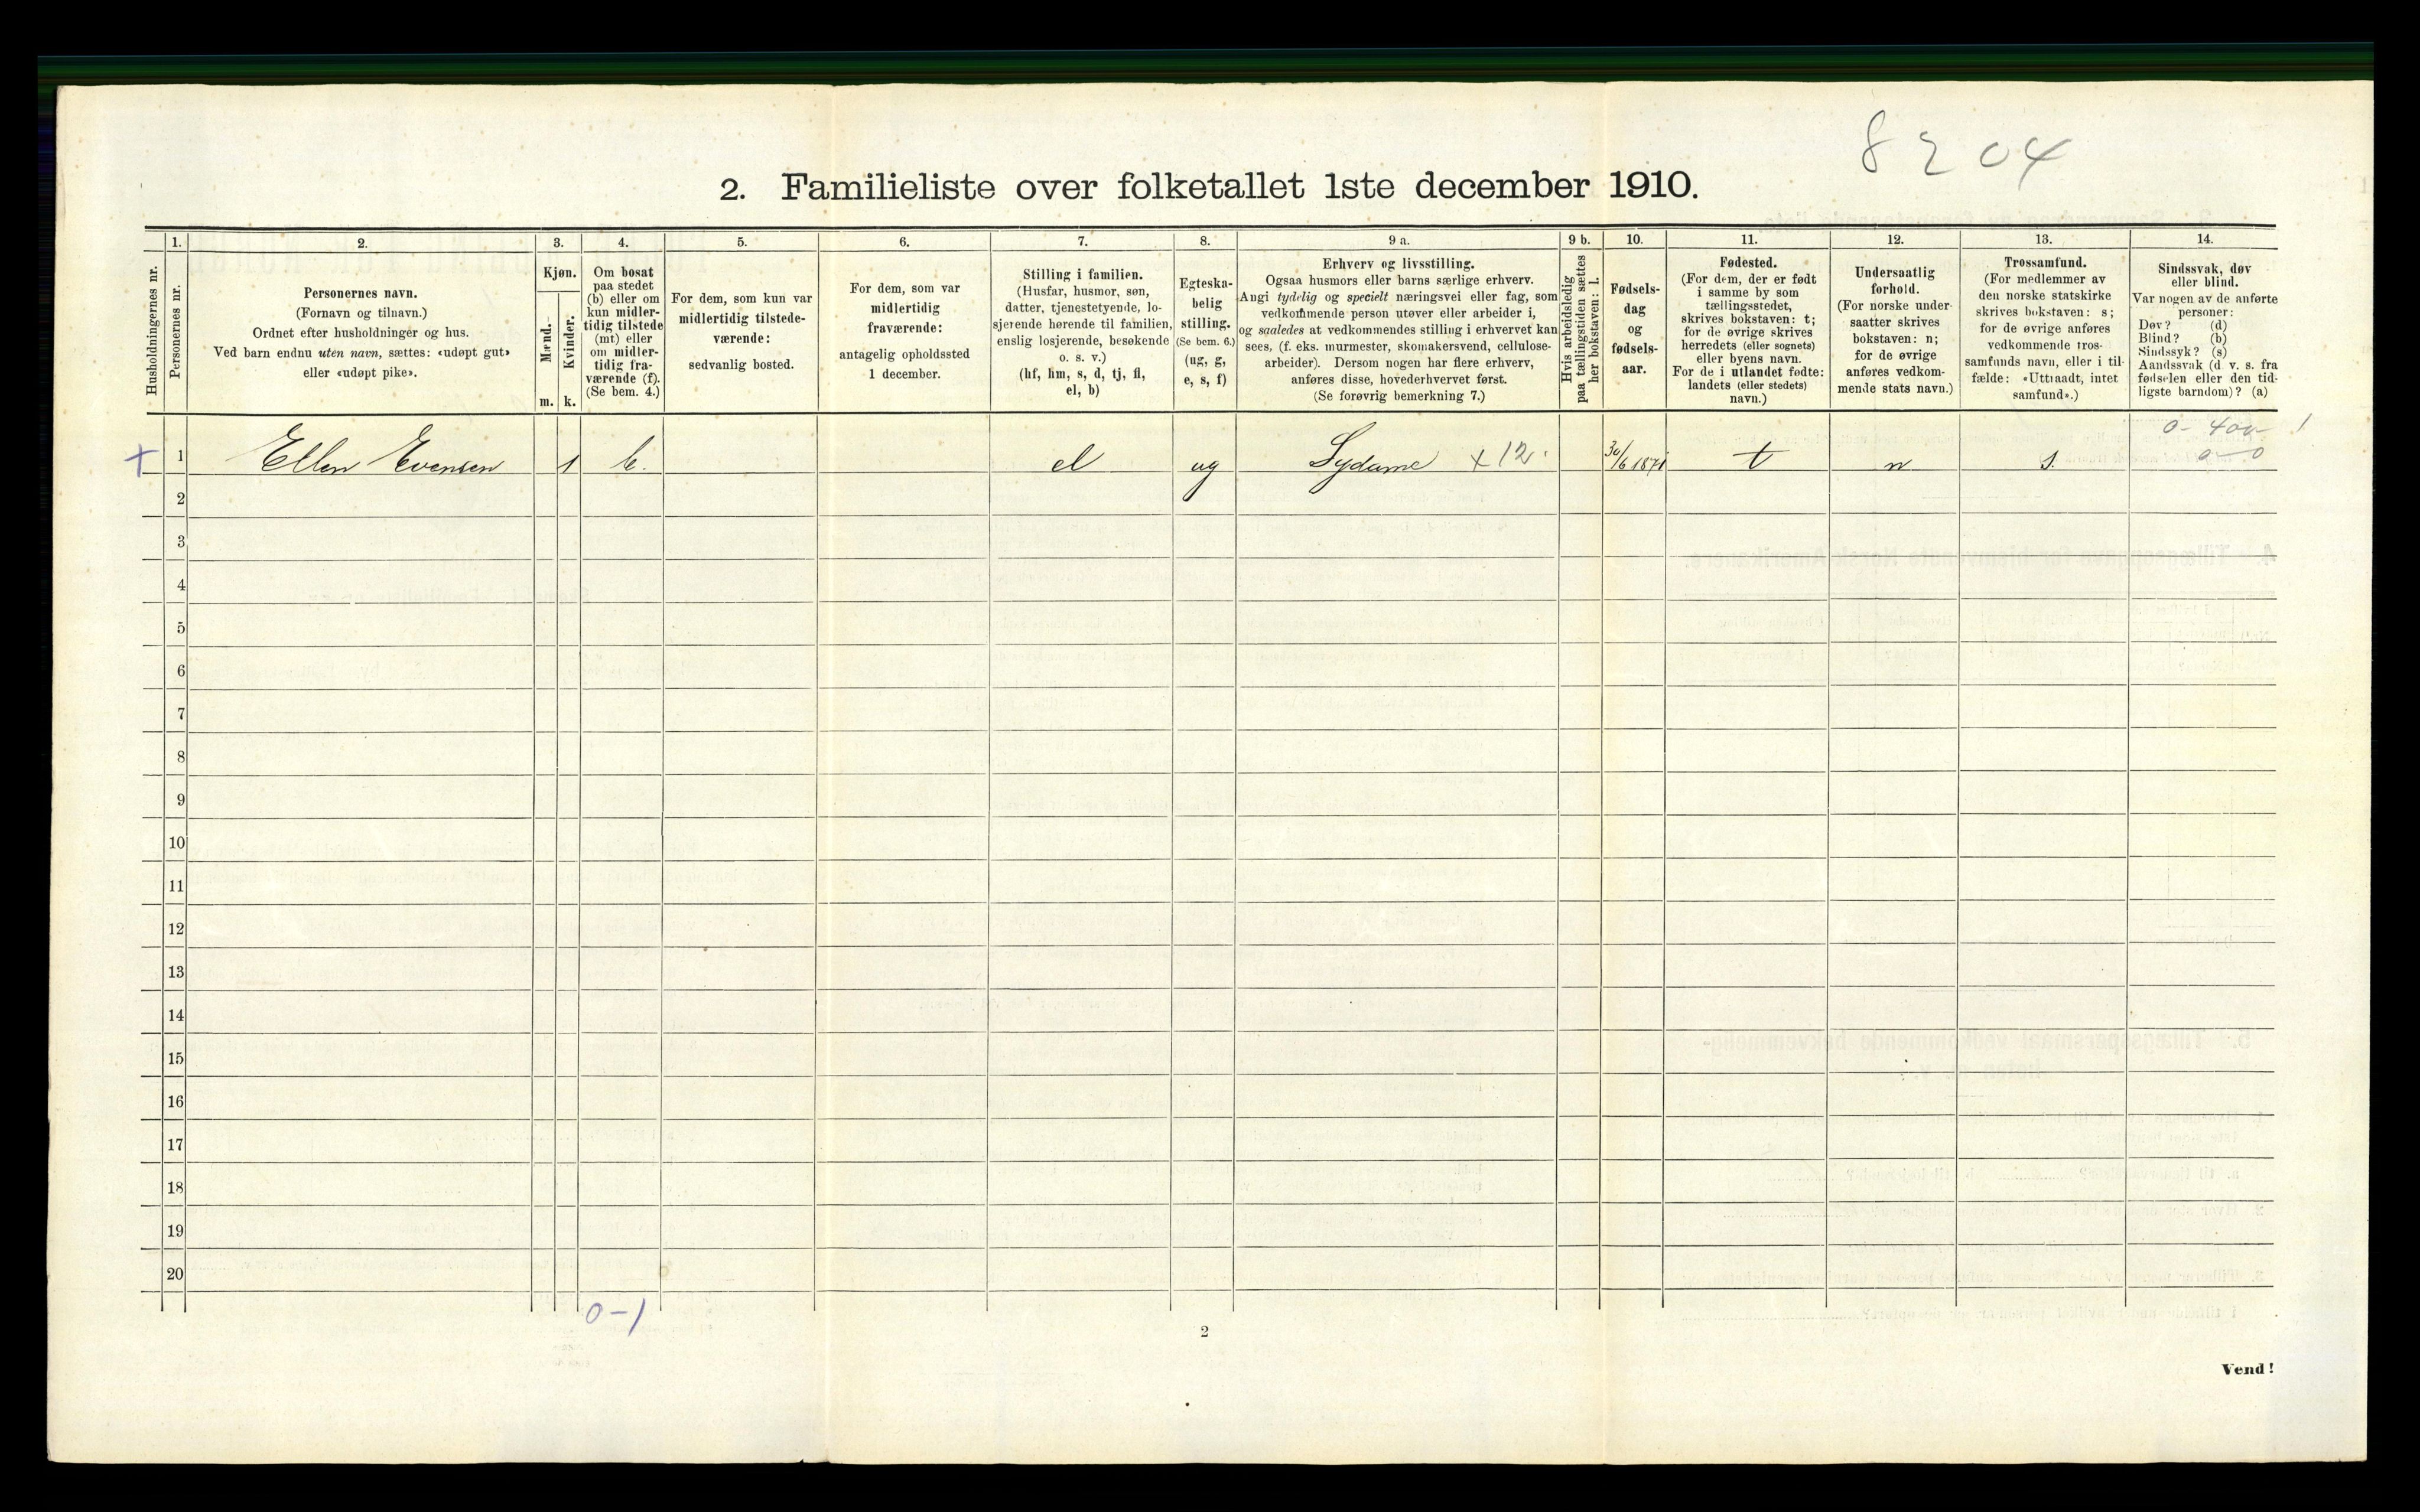 8204
2. Familieliste over folketallet 1ste december 1910.
Husholdningernes nr.
1.
Personernes nr.
2.
Personernes navn.
(Fornavn og tilnavn.)
Ordnet efter husholdninger og hus.
Ved barn endnu uten navn, sættes: «udøpt gut»
eller «udøpt pike».
3.
Kjøn.
Mænd.
Kvinder.
m. k.
4.
Om bosat
paa stedet
(b) eller om
kun midler-
tidig tilstede
(mt) eller
om midler-
tidig fra-
værende (f).
(Se bem. 4.)
5.
For dem, som kun var
midlertidig tilstede-
værende:
sedvanlig bosted.
6.
For dem, som var
midlertidig
fraværende:
antagelig opholdssted
1 december.
7.
Stilling i familien.
(Husfar, husmor, søn,
datter, tjenestetyende, lo-
sjerende hørende til familien,
enslig losjerende, besøkende
o. s. v.)
(hf, hm, s, d, tj, fl,
el, b)
8.
Egteska-
belig
stilling.
(Se bem. 6.)
(ug, g,
e, s, f)
9 a.
Erhverv og livsstilling.
Ogsaa husmors eller barns særlige erhverv.
Angi tydelig og specielt næringsvei eller fag, som
vedkommende person utøver eller arbeider i,
og saaledes at vedkommendes stilling i erhvervet kan
sees, (f. eks. murmester, skomakersvend, cellulose-
arbeider). Dersom nogen har flere erhverv,
anføres disse, hovederhvervet først.
(Se forøvrig bemerkning 7.)
9 b.
Hvis arbeidsledig
paa tællingstiden sættes
her bokstaven: l.
10.
Fødsels-
dag
og
fødsels-
aar.
11.
Fødested.
(For dem, der er født
i samme by som
tællingsstedet,
skrives bokstaven: t;
for de øvrige skrives
herredets (eller sognets)
eller byens navn.
For de i utlandet fødte:
landets (eller stedets)
navn.)
12.
Undersaatlig
forhold.
(For norske under-
saatter skrives
bokstaven: n;
for de øvrige
anføres vedkom-
mende stats navn.)
13.
Trossamfund.
(For medlemmer av
den norske statskirke
skrives bokstaven: s;
for de øvrige anføres
vedkommende tros-
samfunds navn, eller i til-
fælde: «Uttraadt, intet
samfund».)
14.
Sindssvak, døv
eller blind.
Var nogen av de anførte
personer:
Døv? (d)
Blind? (b)
Sindssyk? (s)
Aandssvak (d. v. s. fra
fødselen eller den tid-
ligste barndom)? (a)
0 - 400 - 1
0 - 0
+ 1 Ellen Evensen 1 b. el ug Sydame + 12. 30/6 1871 t n s.
2
3
4
5
6
7
8
9
10
11
12
13
14
15
16
17
18
19
20
0-1
2
Vend!